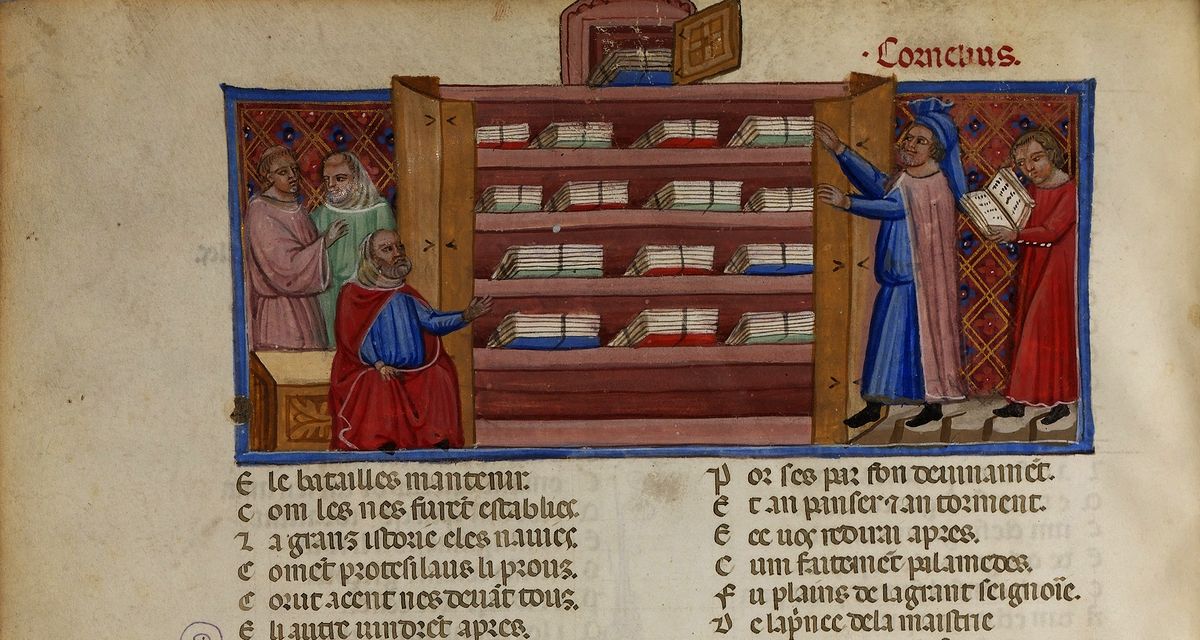 · Cornelius.
E le batailles mantenir.
C om les nes furẽt establies.
L a grans istorie e les navies.
C omẽt protesilaus li prouz.
C orut a cent nes devãt touz.
E li autre vindrẽt apres.
P or ses par son devinamẽt.
E t an panser ⁊ an torment.
E ce vos redirai apres.
C um faitemẽt palamedes.
F u plains de la grant seignoĩe.
D e la p̃nce de la maistrie